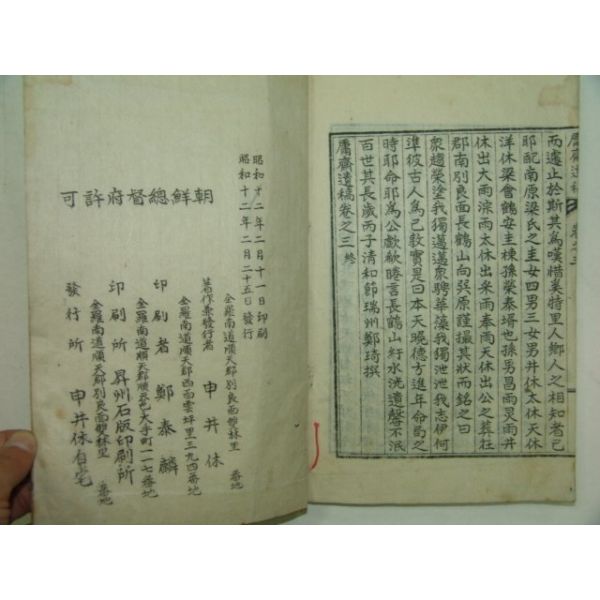 庸齋遺稿
卷之三
而遽止於斯其爲嘆惜奚特里人鄉人之相知者已
耶配南原梁氏之圭女四男三女男井休太休天休
洋休梁會鶴安圭棟孫榮泰壻也孫男昌雨炅雨井
休出大雨淙雨太休出來雨奉雨天休出公之葬在
郡南別良面長鶴山向巽原謹撮其狀而銘之曰
衆趨榮塗我獨邁邁衆騁華藻我獨泄泄我志伊何
準彼古人爲己敎實是曰本天晩德方進年命局之
時耶命耶爲公歔欷睠言長鶴山紆水洸遺馨不泯
百世其長歲丙子清和節瑞州鄭琦撰
庸齋遺稿卷之三 終
昭和十二年二月十一日印刷
昭和十二年二月二十五日發行
朝鮮總督府許可
全羅南道順天郡別良面雙林里 番地
著作兼發行者 申井休
全羅南道順天郡西面雲坪里三九四番地
印刷者 鄭泰麟
全羅南道順天郡順天邑大手町一一七番地
印刷所 昇州石版印刷所
全羅南道順天郡別良面雙林里 番地
發行所 申井休自宅